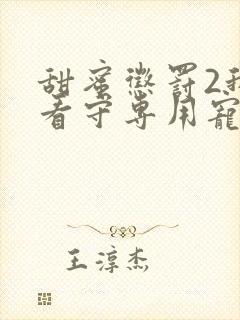 甜蜜惩罚2我
看守专用宠
王淳杰